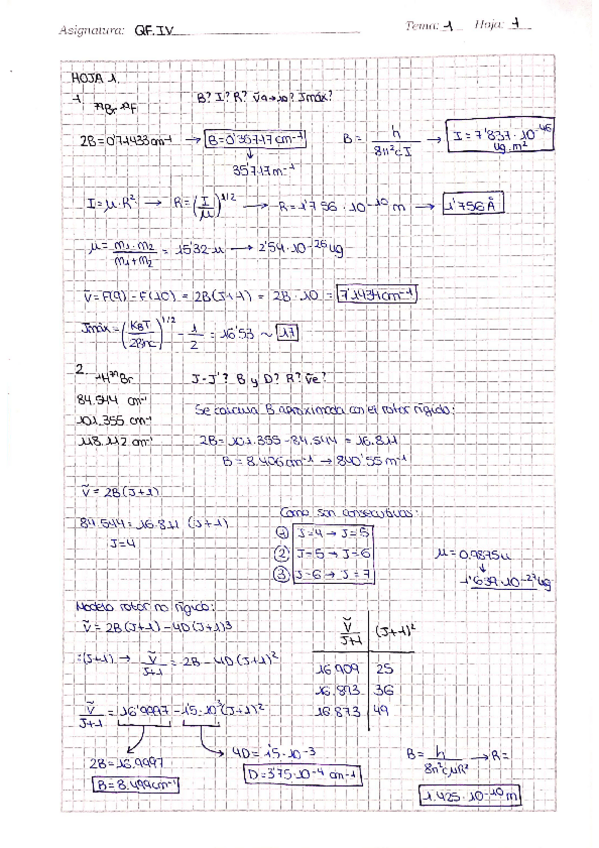 Asignatura: QF.IV Tema: 1 Hoja: 1
HOJA 1.
1. ⁷⁹Br ¹⁹F B? I? R? ṽ9→10? Jmáx?
2B=0'71433cm⁻¹ → B=0'35717cm⁻¹ B = h/8π²cI → I=7'837·10⁻⁴⁶ kg·m²
35'717m⁻¹
I=μ·R² → R=(I/μ)^1/2 → R=1'756·10⁻¹⁰m → 1'756Å
μ = m1·m2/m1+m2 = 15'32u → 2'54·10⁻²⁶kg
ṽ=F(9)-F(10) = 2B(J+1) = 2B·10 = 7'1434cm⁻¹
Jmáx=(KBT/2Bhc)^1/2 - 1/2 = 16'53 ~ 17
2. ¹H⁷⁹Br J-J'? B y D? R? ṽe?
84.544 cm⁻¹
101.355 cm⁻¹
118.112 cm⁻¹
Se calcula B aproximada con el rotor rígido:
2B=101.355-84.544 = 16.811
B=8.406cm⁻¹ → 840'55m⁻¹
ṽ=2B(J+1)
84.544=16.811 (J+1)
J=4
Como son consecutivas:
① J=4→J=5
② J=5→J=6
③ J=6→J=7
μ=0,9875u
1'639·10⁻²⁷kg
Modelo rotor no rígido:
ṽ=2B(J+1)-4D(J+1)³
:(J+1) → ṽ/J+1=2B-4D(J+1)²
ṽ/J+1 (J+1)²
16.909 25
16.893 36
16.873 49
ṽ/J+1=16'9997-1'5·10⁻³(J+1)²
2B=16.9997
B=8.499cm⁻¹
4D=1'5·10⁻³
D=3'75·10⁻⁴ cm⁻¹
B=h/8π²cμR² → R=
1.425·10⁻¹⁰m